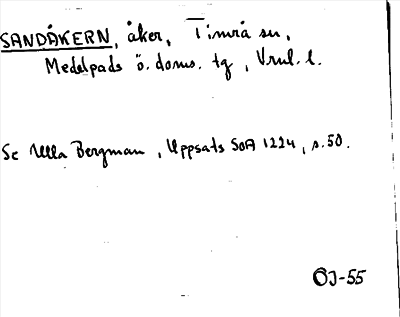 SANDÅKERN, åker, Timrå sn,
Medelpads ö. doms. tg, Vnrl. l.
Se Ulla Bergman, Uppsats SOA 1224, s. 50.
ÖJ-55